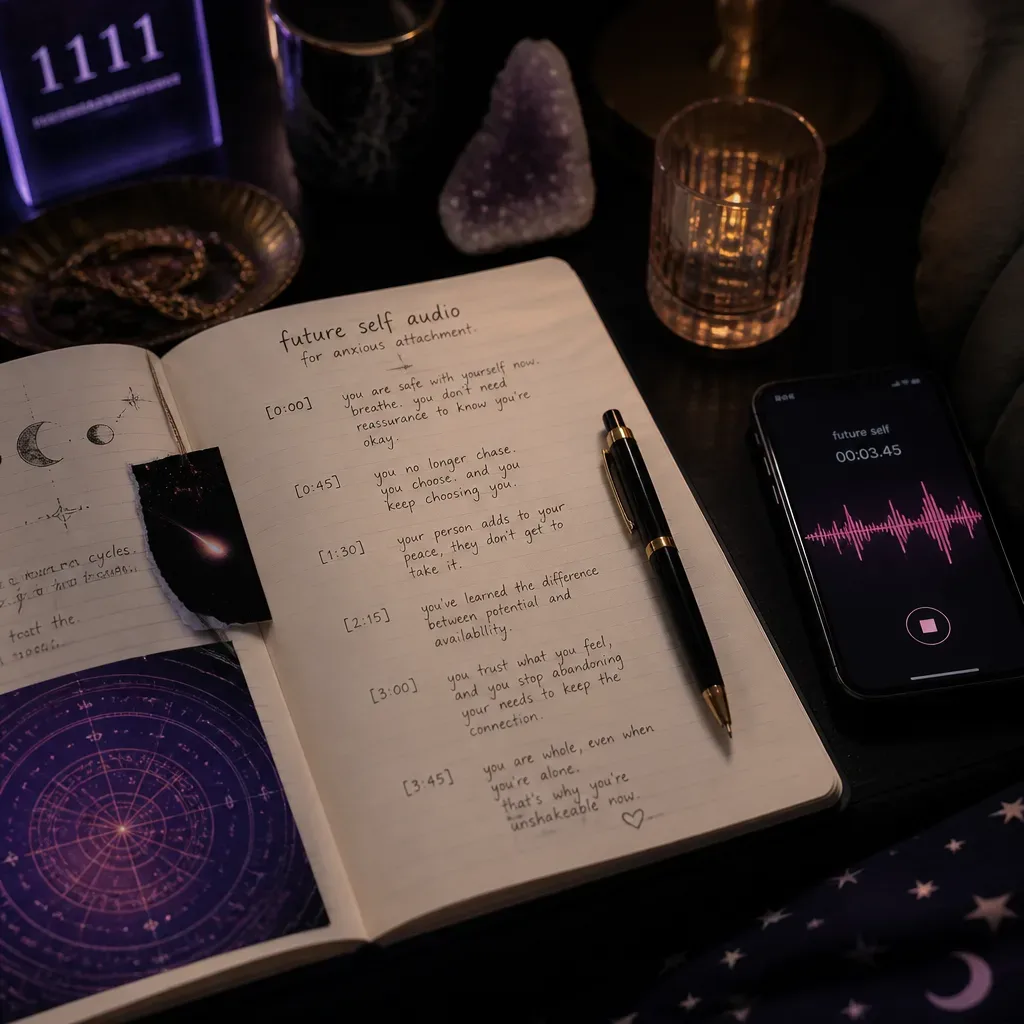 1111
future self audio
for anxious attachment.
[0:00] you are safe with yourself now.
breathe. you don't need
reassurance to know you're
okay.
[0:45] you no longer chase.
you choose. and you
keep choosing you.
[1:30] your person adds to your
peace, they don't get to
take it.
[2:15] you've learned the difference
between potential and
availability.
[3:00] you trust what you feel,
and you stop abandoning
your needs to keep the
connection.
[3:45] you are whole, even when
you're alone.
that's why you're
unshakeable now.
cycles.
the.
future self
00:03.45